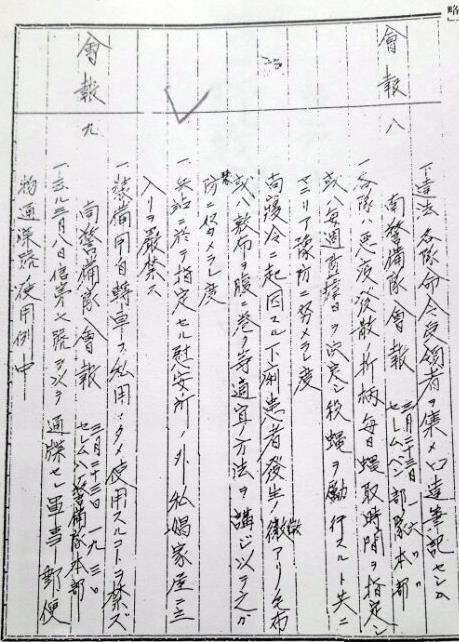 會報 八
下達法 各隊命令受領者ヲ集メ口達筆記セシム
南警備隊會報 三月二十三日
セレムバン部隊本部
一、各隊ハ悪疫ノ發散ノ折柄毎日蠅取時間ヲ指定シ
或ハ毎週 日ヲ決定シ殺蠅ヲ励行スルト共ニ
マラリア豫防ニ努メラレ度
尚寝冷ニ起因スル下痢患者發生ノ徴アリ毛布
或ハ敷布ヲ腹ニ巻ク等適宜方法ヲ講ジ以テ之ガ
防 ニ努メラレ度
一、兵站ニ於テ指定セル慰安所ノ外、私娼家屋ニ
入リヲ厳禁ス
一、装備用自轉車ヲ私用ノタメ使用スルコトヲ禁ズ
會報 九
南警備隊會報 三月二十三日 一九、三〇
セレムバン警備隊本部
一、去ル三月八日信第七號ヲ以テ通牒セシ軍事郵便
物通 號使用例中